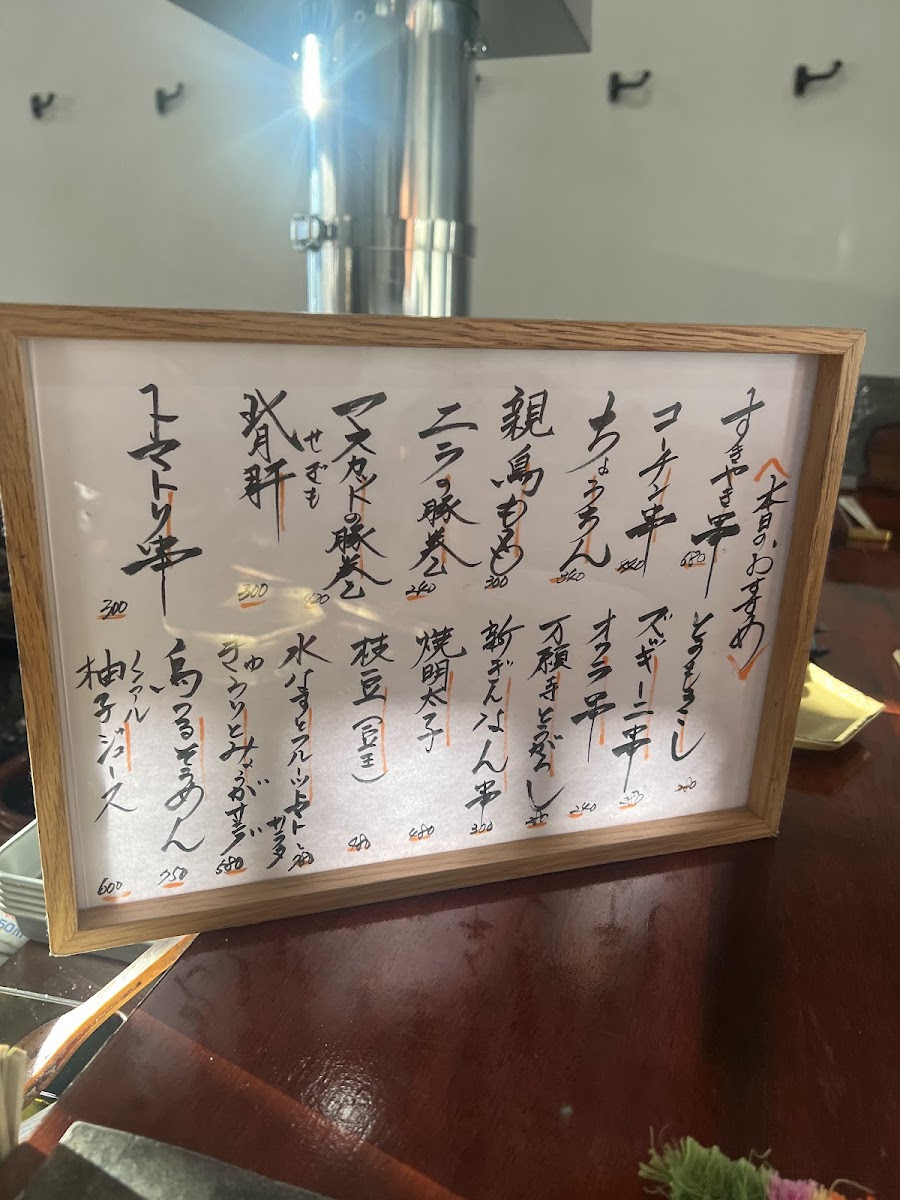 〈本日のおすすめ〉
すきやき串 680
コーチン串
ちょうちん 340
親鳥もも 300
ニラの豚巻 240
マスカットの豚巻
背肝 せぎも 300
トマトリ串 300
とうもろこし
ズッキーニ串
オクラ串 240
万願寺とうがらし
新ぎんなん串 300
焼明太子 480
枝豆(豆王) 480
水なすとフルーツトマトサラダ 780
きゅうりとみょうがサラダ 580
鳥つるそうめん 750
柚子ジュース 600